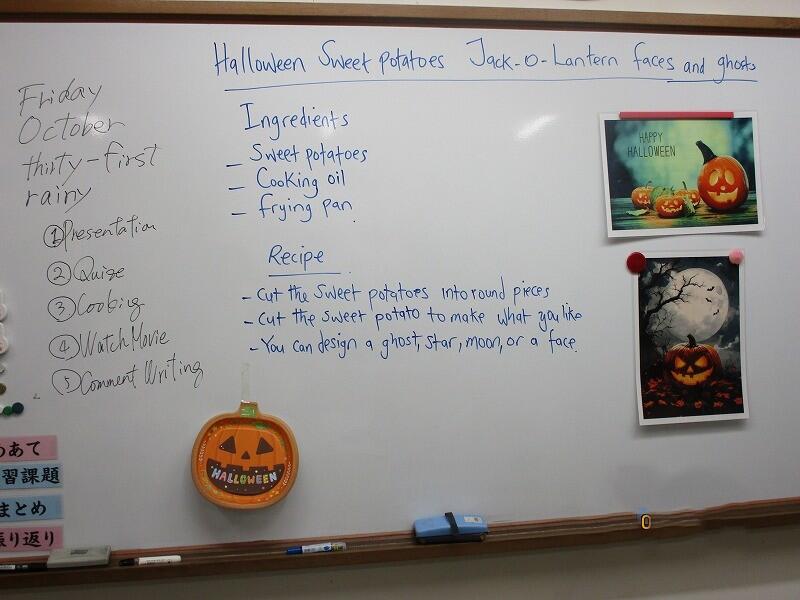 Halloween Sweet potatoes Jack-o-Lantern faces and ghosts
Friday
October
thirty-first
rainy
① Presentation
② Quize
③ Cooking
④ Watch Movie
⑤ Comment Writing
Ingredients
- Sweet potatoes
- Cooking oil
- frying pan
Recipe
- Cut the sweet potatoes into round pieces
- Cut the sweet potato to make what you like
- You can design a ghost, star, moon, or a face.
HAPPY
HALLOWEEN
HALLOWEEN
めあて
習課題
まとめ
振り返り